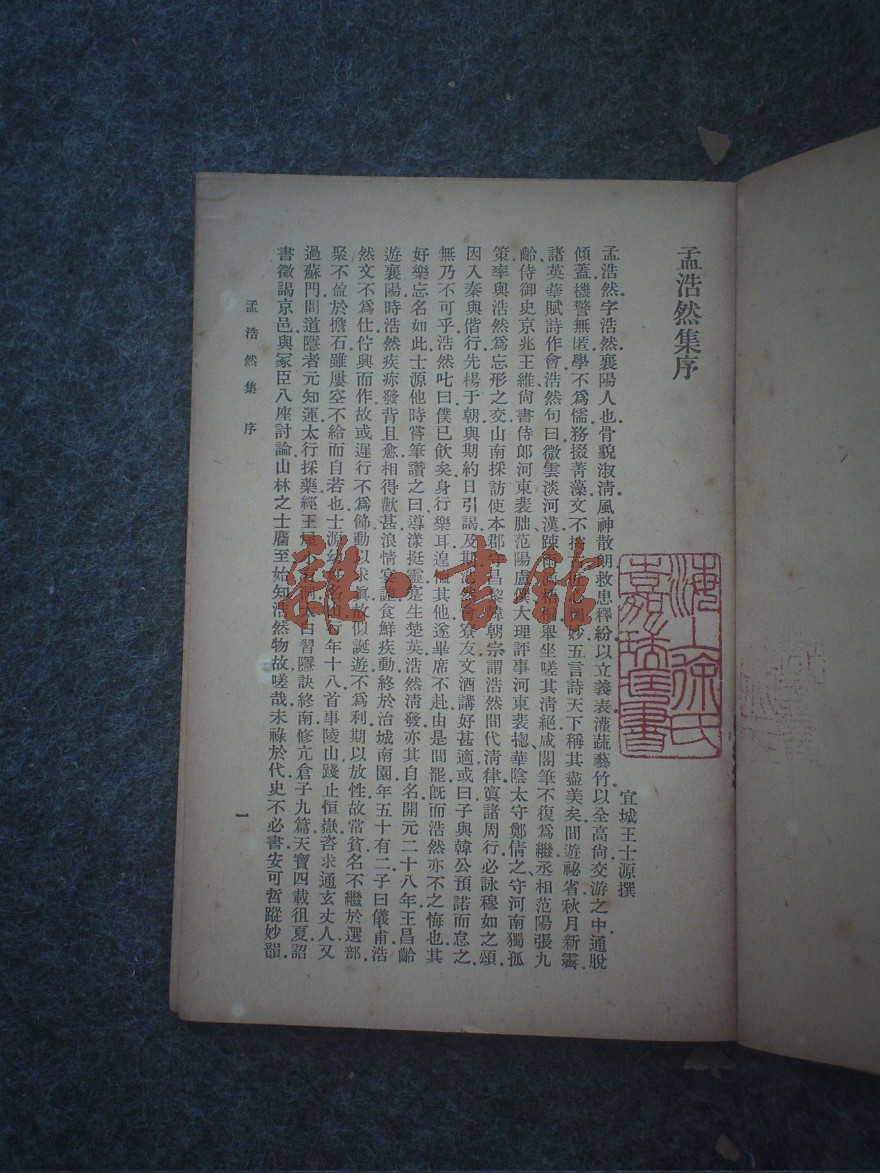 孟浩然集序
宜城王士源撰
孟浩然字浩然.襄陽人也.骨貌淑清.風神散朗.救患釋紛以立義表.灌蔬藝竹以全高尚.交游之中.通脫
傾蓋.機警無匿.學不爲儒.務掇菁藻.文不按妙.五言詩天下稱其盡美矣.間遊祕省.秋月新霽.
諸英華賦詩作會.浩然句曰.微雲淡河漢.疎雨舉坐嗟其清絕.咸閣筆不復爲繼.丞相范陽張九
齡.侍御史京兆王維.尚書侍郎河東裴朏.范陽盧僎.大理評事河東裴摠.華陰太守鄭倩之.守河南獨孤
策.率與浩然爲忘形之交.山南採訪使本郡守昌黎韓朝宗.謂浩然間代清律.寘諸周行.必詠穆如之頌.
因入秦.與偕行.先楊于朝.與期約日引謁.及期.浩然會寮友.文酒講好甚適.或曰.子與韓公預諾而怠之.
無乃不可乎.浩然叱曰.僕已飲矣.身行樂耳.遑恤其他.遂畢席不赴.由是間罷.旣而浩然亦不之悔也.其
好樂忘名如此.士源他時嘗筆讚之曰.導漾挺靈.是生楚英.浩然清發.亦其自名.開元二十八年.王昌齡
遊襄陽.時浩然疾疹發背且愈.相得歡甚.浪情宴謔.食鮮疾動.終於治城南園.年五十有二.子曰儀甫.浩
然文不爲仕.佇興而作.故或遲.行不爲飾.動以求眞.故似誕.遊不爲利.期以放性.故常貧.名不繼於選部.
聚不盈於擔石.雖屢空不給而自若也.士源幼好名山.行年十八.首事陵山.踐止恒嶽.咨求通玄丈人.又
過蘇門.問道隱者元知運.太行採藥.經王屋小有洞.太白習隱訣.終南修亢倉子九篇.天寶四載徂夏.詔
書徵謁京邑.與冢臣八座討論.山林之士麕至.始知浩然物故.嗟哉.未祿於代.史不必書.安可哲蹤妙韻
孟浩然集 序
一
雜·書館
海上徐氏